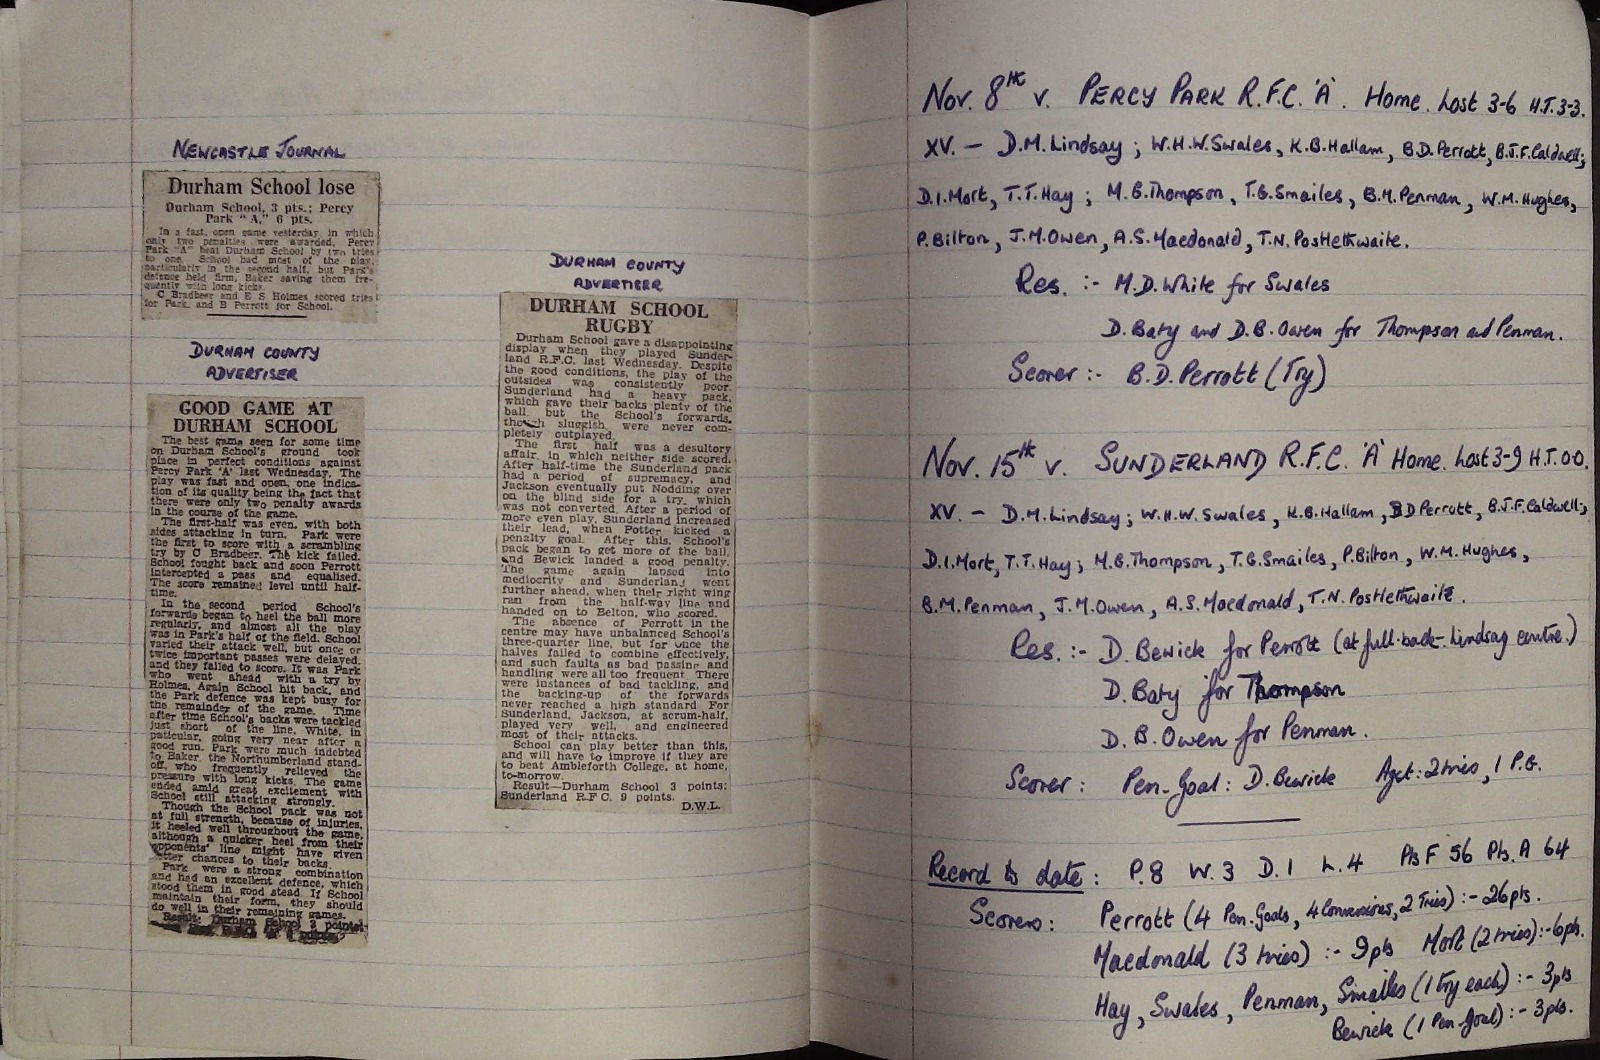 NEWCASTLE JOURNAL
Durham School lose
Durham School, 3 pts.; Percy
Park "A," 6 pts.
In a fast, open game yesterday, in which
only two penalties were awarded, Percy
Park "A" beat Durham School by two tries
to one. School had most of the play,
particularly in the second half, but Park's
defence held firm, Baker saving them fre-
quently with long kicks.
C Bradbeer and E S Holmes scored tries
for Park, and B Perrott for School.
DURHAM COUNTY
ADVERTISER
GOOD GAME AT
DURHAM SCHOOL
The best game seen for some time
on Durham School's ground took
place in perfect conditions against
Percy Park 'A' last Wednesday. The
play was fast and open, one indica-
tion of its quality being the fact that
there were only two penalty awards
in the course of the game.
The first-half was even, with both
sides attacking in turn. Park were
the first to score with a scrambling
try by C Bradbeer. The kick failed.
School fought back and soon Perrott
intercepted a pass and equalised.
The score remained level until half-
time.
In the second period School's
forwards began to heel the ball more
regularly, and almost all the play
was in Park's half of the field. School
varied their attack well, but once or
twice important passes were delayed,
and they failed to score. It was Park
who went ahead with a try by
Holmes. Again School hit back, and
the Park defence was kept busy for
the remainder of the game. Time
after time School's backs were tackled
just short of the line, White, in
paticular, going very near after a
good run. Park were much indebted
to Baker, the Northumberland stand-
off, who frequently relieved the
pressure with long kicks. The game
ended amid great excitement with
School still attacking strongly.
Though the School pack was not
at full strength, because of injuries,
it heeled well throughout the game,
although a quicker heel from their
opponents' line might have given
better chances to their backs.
Park were a strong combination
and had an excellent defence, which
stood them in good stead. If School
maintain their form, they should
do well in their remaining games.
Result: Durham School 3 points;
DURHAM COUNTY
ADVERTISER
DURHAM SCHOOL
RUGBY
Durham School gave a disappointing
display when they played Sunder-
land R.F.C. last Wednesday. Despite
the good conditions, the play of the
outsides was consistently poor.
Sunderland had a heavy pack,
which gave their backs plenty of the
ball, but the School's forwards,
though sluggish, were never com-
pletely outplayed.
The first half was a desultory
affair, in which neither side scored.
After half-time the Sunderland pack
had a period of supremacy, and
Jackson eventually put Nodding over
on the blind side for a try, which
was not converted. After a period of
more even play, Sunderland increased
their lead, when Potter kicked a
penalty goal. After this, School's
pack began to get more of the ball,
and Bewick landed a good penalty.
The game again lapsed into
mediocrity and Sunderland went
further ahead, when their right wing
ran from the half-way line and
handed on to Belton, who scored.
The absence of Perrott in the
centre may have unbalanced School's
three-quarter line, but for once the
halves failed to combine effectively,
and such faults as bad passing and
handling were all too frequent. There
were instances of bad tackling, and
the backing-up of the forwards
never reached a high standard. For
Sunderland, Jackson, at scrum-half,
played very well, and engineered
most of their attacks.
School can play better than this,
and will have to improve if they are
to beat Ambleforth College, at home,
to-morrow.
Result—Durham School 3 points;
Sunderland R F C. 9 points.
D.W.L.
Nov. 8th v. PERCY PARK R.F.C. 'A'. Home. Lost 3-6 H.T. 3-3.
XV. — D.M. Lindsay; W.H.W. Swales, K.B. Hallam, B.D. Perrott, B.J.F. Caldwell;
D.I. Mort, T.T. Hay; M.G. Thompson, T.G. Smailes, B.M. Penman, W.M. Hughes,
P. Bilton, J.M. Owen, A.S. Macdonald, T.N. Postlethwaite.
Res. :- M.D. White for Swales
D. Baty and D.B. Owen for Thompson and Penman.
Scorer :- B.D. Perrott (Try)
Nov. 15th v. SUNDERLAND R.F.C. 'A' Home. Lost 3-9 H.T. 0-0.
XV. — D.M. Lindsay; W.H.W. Swales, K.B. Hallam, B D Perrott, B.J.F. Caldwell;
D.I. Mort, T.T. Hay; M.G. Thompson, T.G. Smailes, P. Bilton, W.M. Hughes,
B.M. Penman, J.M. Owen, A.S. Macdonald, T.N. Postlethwaite.
Res. :- D. Bewick for Perrott (at full-back - Lindsay centre.)
D. Baty for Thompson
D. B. Owen for Penman.
Scorer: Pen-Goal: D. Bewick Agst: 2 tries, 1 P.G.
Record to date: P. 8 W. 3 D. 1 L. 4 Pts F 56 Pts. A 64
Scorers: Perrott (4 Pen-Goals, 4 Conversions, 2 Tries) :- 26 pts.
Macdonald (3 tries) :- 9 pts Mort (2 tries) :- 6 pts.
Hay, Swales, Penman, Smailes (1 try each) :- 3 pts
Bewick (1 Pen-Goal) :- 3 pts.